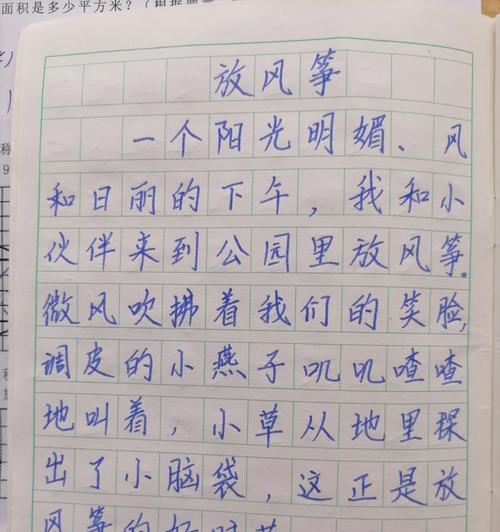 面积是多少平方米？（根据
放风筝
一个阳光明媚、风
和日丽的下午，我和小
伙伴来到公园里放风筝.
微风吹拂着我们的笑脸,
调皮的小燕子叽叽喳喳
地叫着，小草从地里探
出了小脑袋，这正是放
风筝的好时节